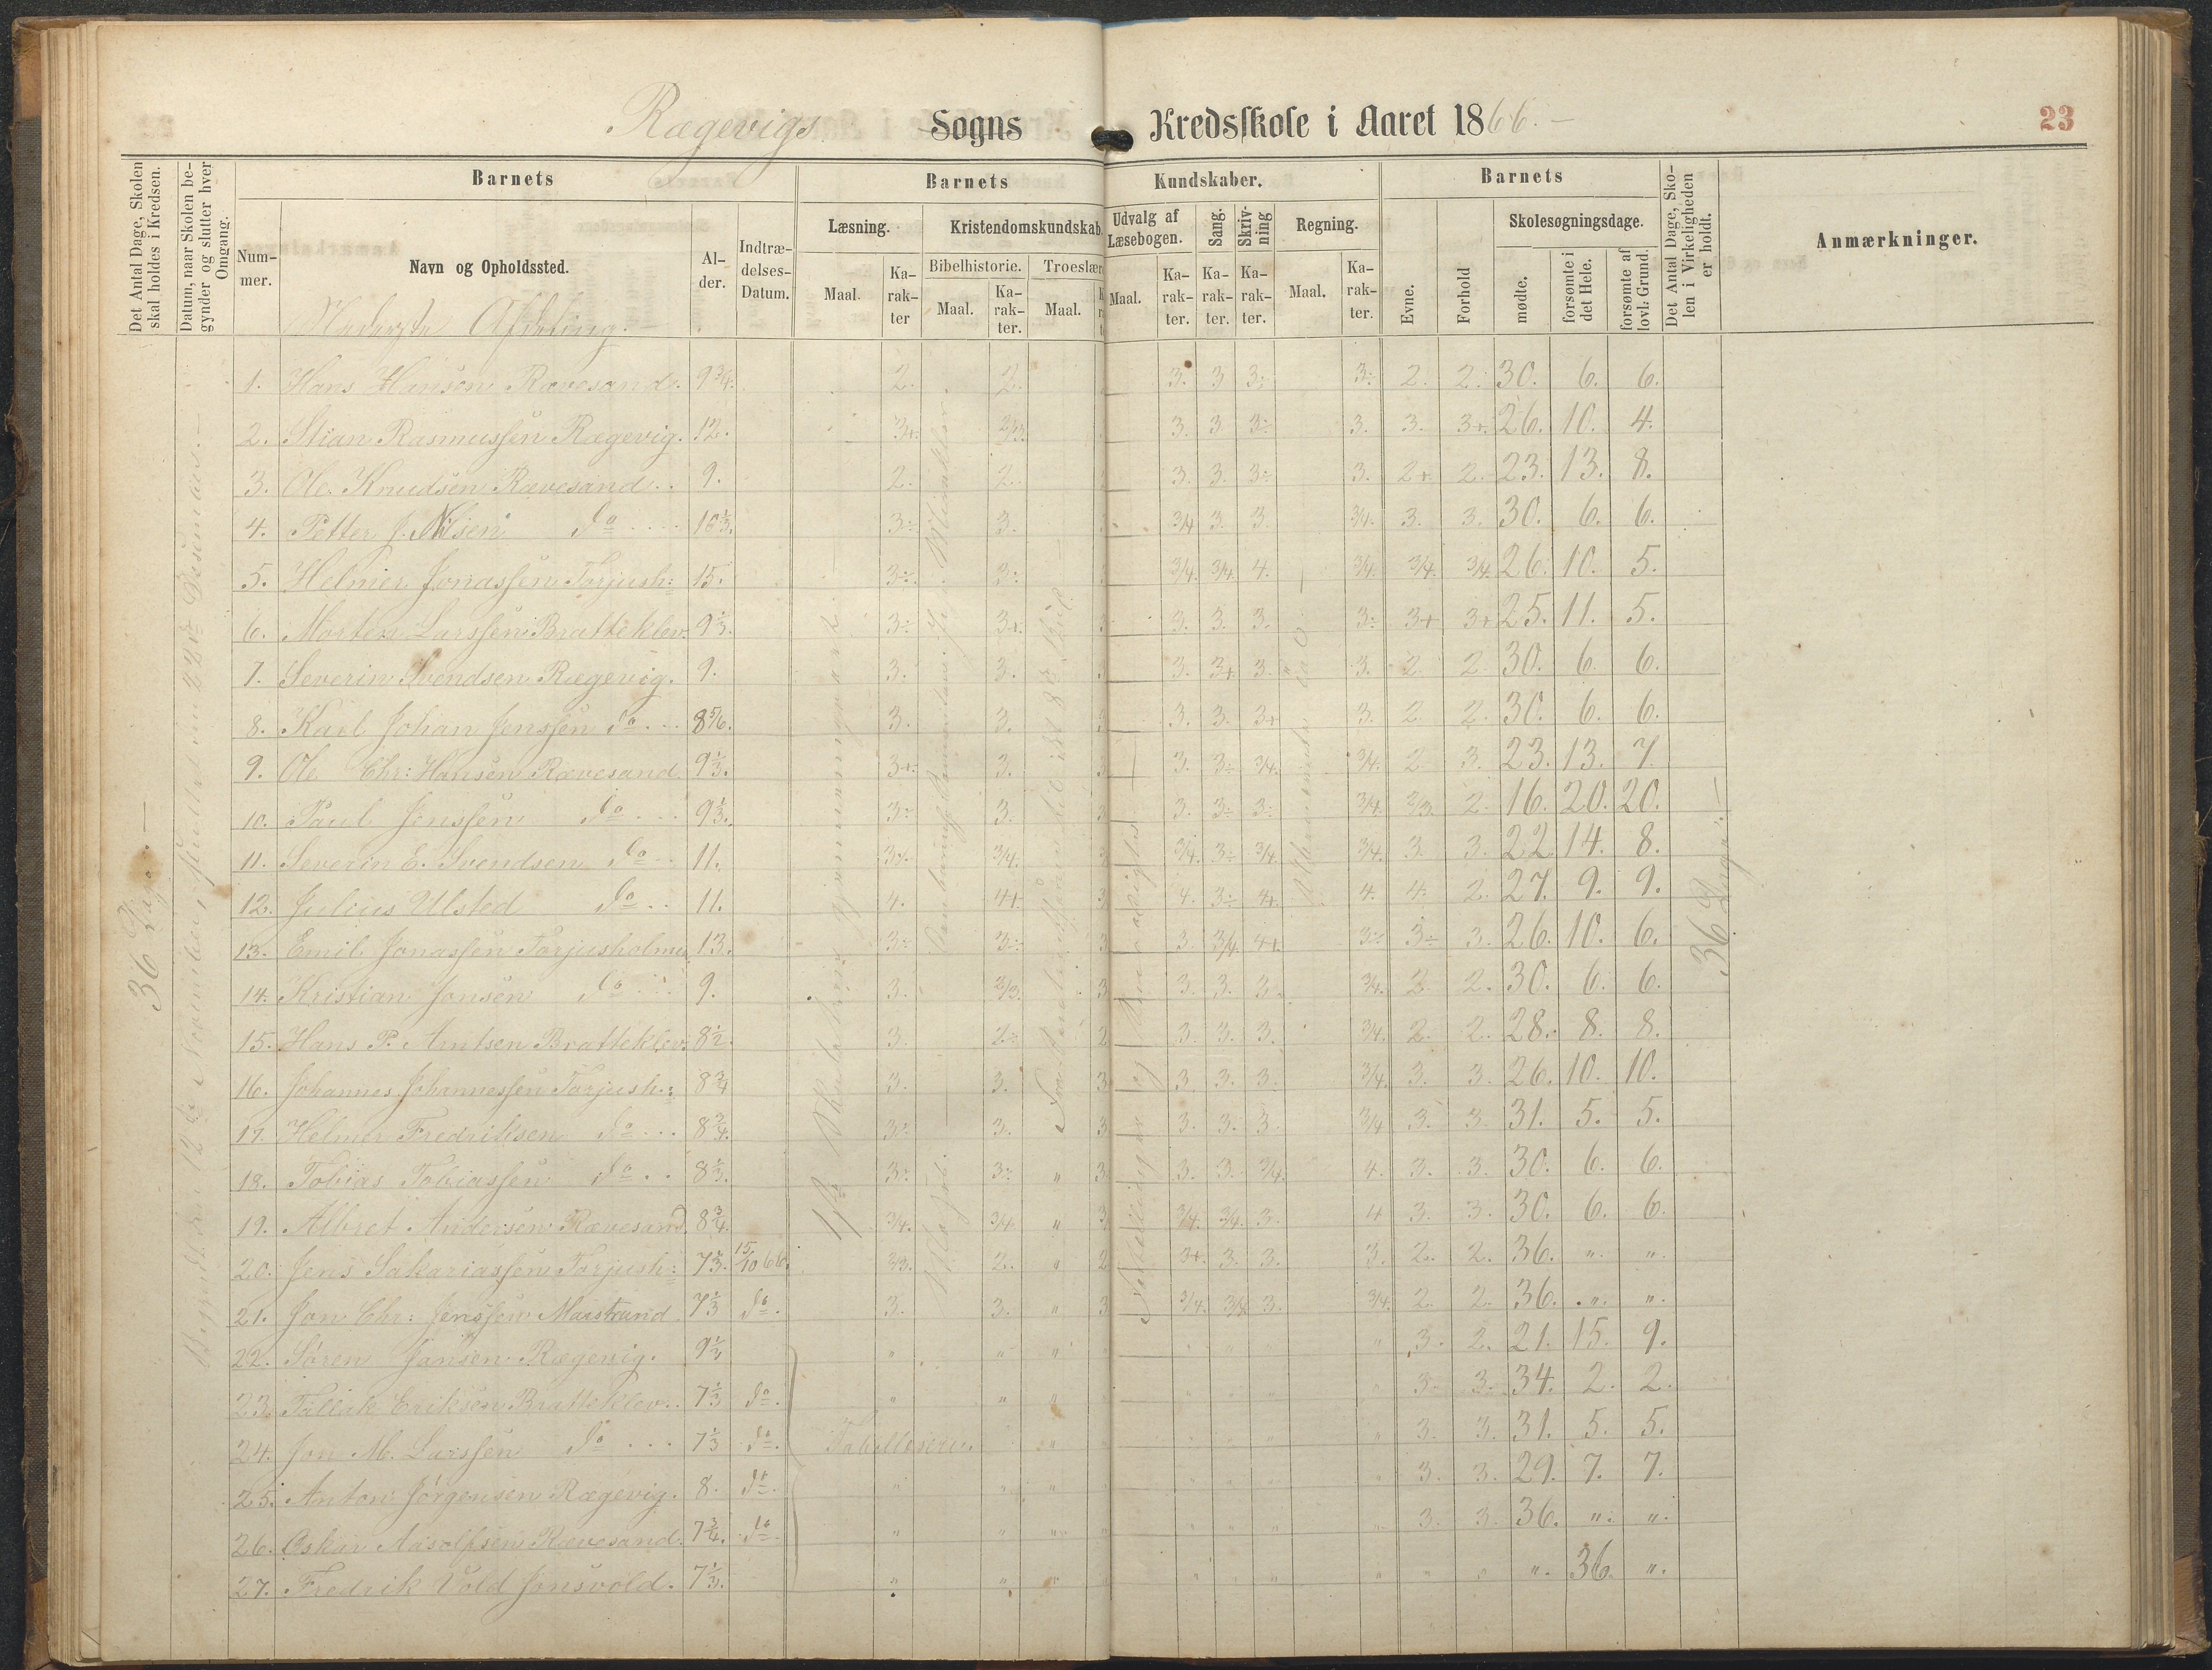 Rægevigs Sogns Kredsskole i Aaret 1866.
23
Det Antal Dage, Skolen skal holdes i Kredsen.
Datum, naar Skolen begynder og slutter hver Omgang.
Barnets
Barnets Kundskaber.
Barnets
Det Antal Dage, Skolen i Virkeligheden er holdt.
Anmærkninger.
Nummer.
Navn og Opholdssted.
Alder.
Indtrædelses-Datum.
Læsning.
Kristendomskundskab.
Udvalg af Læsebogen.
Sang.
Skrivning
Regning.
Evne.
Forhold
Skolesøgningsdage.
Bibelhistorie.
Troeslær
Maal.
Karakter
Maal.
Karakter.
Maal.
Maal.
Karakter.
Karakter.
Karakter.
Maal.
Karakter.
mødte.
forsømte i det Hele.
forsømte af lovl. Grund.
Nederste Afdeling.
36 Dage.
36 Dage.
1. Hans Hansen Rævesand. 9 3/4. 2. 2. 3. 3 3÷ 3÷ 2. 2. 30. 6. 6.
2. Stian Rasmussen Rægevig. 12. 3+. 2/3. 3. 3. 3÷ 3. 3. 3+. 26. 10. 4.
3. Ole Knudsen Rævesand. 9. 2. 2. 3. 3. 3÷ 3. 2+. 2. 23. 13. 8.
4. Petter J. Nilsen do 10 1/3. 3÷ 3. 3/4 3. 3. 3/4. 3. 3. 30. 6. 6.
5. Helmer Jonassen Torjush: 15. 3÷ 3÷ 3/4. 3/4. 4. 3/4. 3/4. 3/4. 26. 10. 5.
6. Morten Larssen Bratteklev. 9 1/3. 3÷ 3+. 3. 3. 3. 3÷ 3+ 3+ 25. 11. 5.
7. Severin Svendsen Rægevig. 9. 3. 3. 3. 3+. 3. 3. 2. 2. 30. 6. 6.
8. Karl Johan Jenssen do 8 5/6. 3. 3. 3. 3. 3+ 3. 2. 2. 30. 6. 6.
9. Ole Chr: Hansen Rævesand 9 1/3. 3+. 3. 3. 3÷ 3/4. 3/4. 2. 3. 23. 13. 7.
10. Paul Jenssen do 9 1/3. 3÷ 3. 3. 3÷ 3÷ 3/4. 2/3. 2. 16. 20. 20.
11. Severin E. Svendsen do 11. 3/4. 3/4. 3÷ 3/4. 3/4. 3. 3. 22. 14. 8.
12. Julius Ulsted do 11. 4. 4+. 4. 3÷ 4+. 4. 4. 2. 27. 9. 9.
13. Emil Jonassen Torjusholmen 13. 3÷ 3÷ 3. 3/4. 4+. 3÷ 3÷ 3. 26. 10. 6.
14. Kristian Jonsen do 9. 3. 2/3. 3. 3. 3. 3/4. 2. 2. 30. 6. 6.
15. Hans P. Arntsen Bratteklev. 8 1/2. 3. 2÷ 3. 3. 3. 3/4. 2. 2. 28. 8. 8.
16. Johannes Johannessen Torjush: 8 3/4 3. 3. 3. 3. 3. 3/4. 3. 3. 26. 10. 10.
17. Helmer Fredriksen do 8 3/4. 3÷ 3. 3. 3. 3. 3/4 3. 3. 31. 5. 5.
18. Tobias Tobiassen do 8 1/3. 3÷ 3÷ " 3. 3. 3/4. 4. 3. 3. 30. 6. 6.
19. Albret Andersen Rævesand. 8 3/4. 3/4. 3/4. " 3/4. 3/4. 3. 4 3. 3. 30. 6. 6.
20. Jens Sakariassen Torjush: 15/10 66. 2/3. 2. " 3+. 3. 3. 3. 2. 2. 36. " "
21. Jon Chr: Jenssen Marstrand 7 1/3 do. 3. 3. " 3/4. 3/4. 3. 3/4. 2. 2. 36. " "
22. Søren Jansen Rægevig. " " " " 3. 2. 21. 15. 9.
23. Tallak Eriksen Bratteklev. 7 1/3 do. " " " " 3. 3. 34. 2. 2.
24. Jon M. Larssen do 7 1/3 do. Tabellæsere. " 3. 3. 31. 5. 5.
25. Anton Jørgensen Rægevig. 8. do. " " " " 3. 3. 29. 7. 7.
26. Oskar Aasolfsen Rævesand. 7 3/4. do. " " " " 3. 3. 36. " "
27. Fredrik Vold Jonsvold. 7 1/3. " " " " " " " 36. "